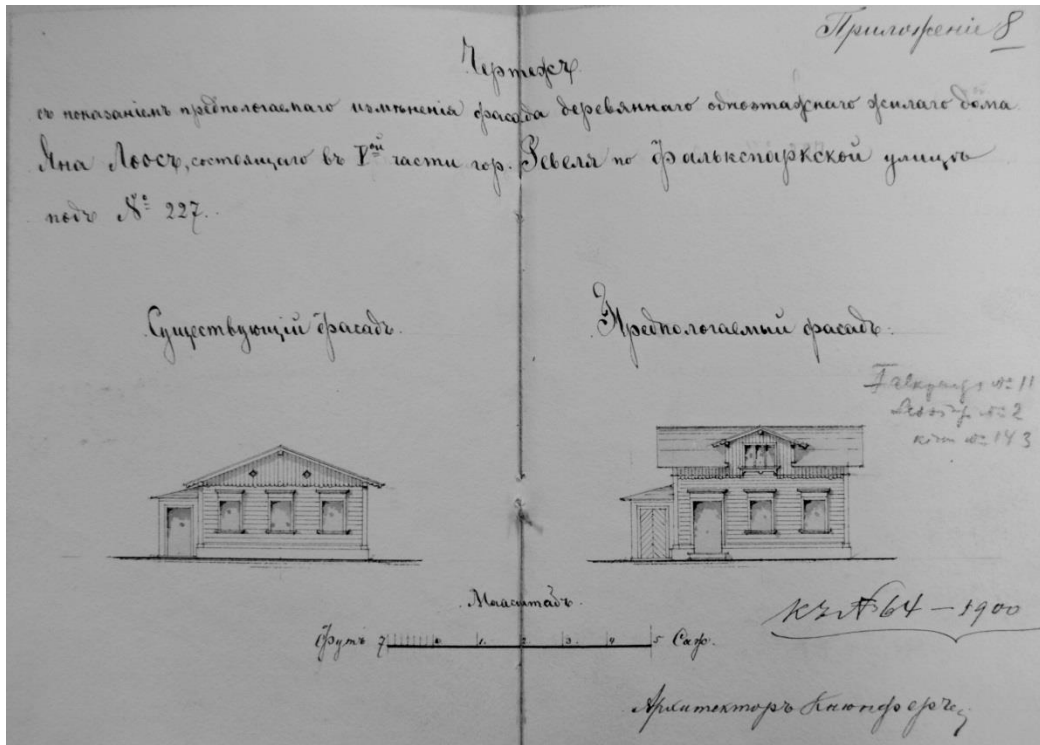 Приложеніе 8
Чертежъ
съ показаніемъ предпологаемаго измѣненія фасада деревяннаго одноэтажнаго жилаго дома
Яна Лоосъ, состоящаго въ Vой части гор. Ревеля по Фалькспаркской улицѣ
подъ № 227.
Существующій фасадъ.
Предпологаемый фасадъ.
№ 11
№ 2
№ 143
Масштабъ.
Футъ 7 0 1. 2 3. 4 5 Саж.
къ № 64 – 1900
Архитекторъ Кнюпферъ